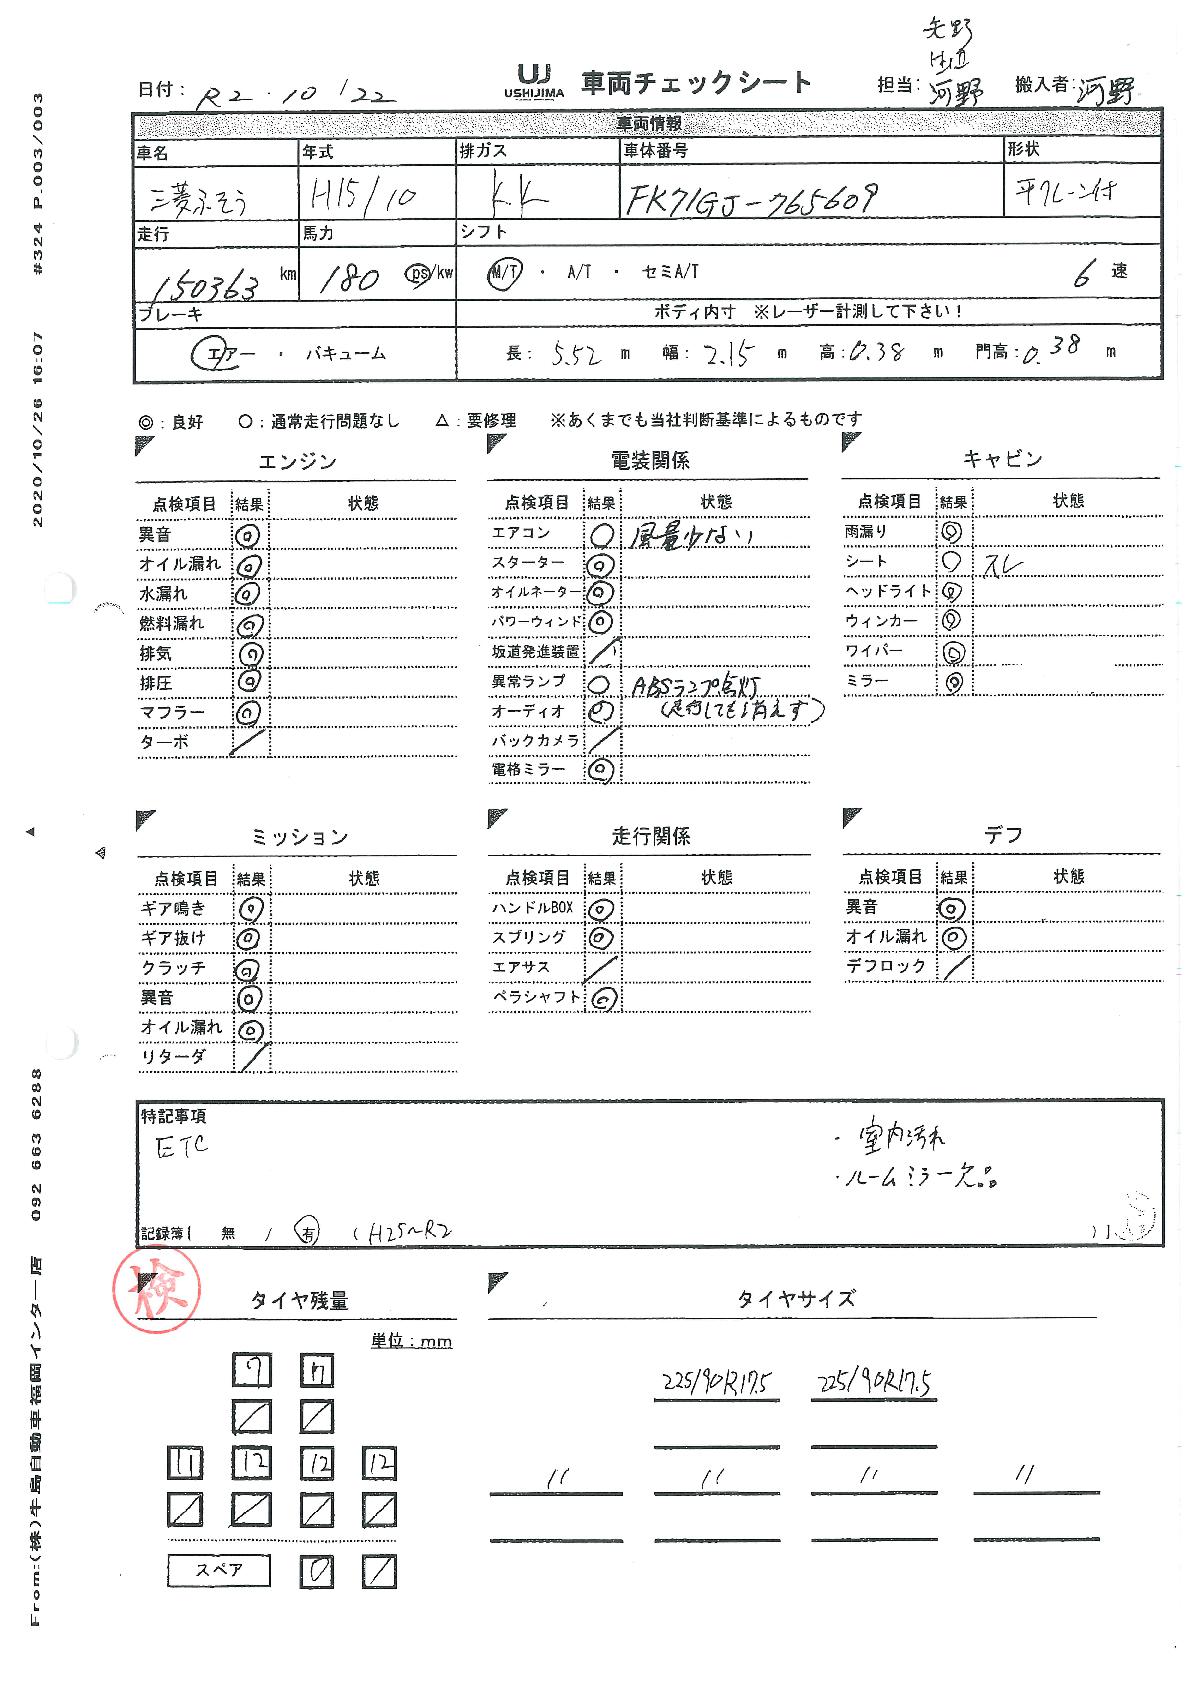 矢野
日付: R2.10/22 UJ USHIJIMA 車両チェックシート 担当: 河野 搬入者: 河野
車両情報
車名 年式 排ガス 車体番号 形状
三菱ふそう H15/10 KK FK71GJ-765609 平クレーン付
走行 馬力 シフト
150363 km 180 ps/kw M/T ・ A/T ・ セミA/T 6 速
ブレーキ ボディ内寸 ※レーザー計測して下さい!
エアー ・ バキューム 長: 5.52 m 幅: 2.15 m 高: 0.38 m 門高: 0.38 m
◎:良好 ○:通常走行問題なし △:要修理 ※あくまでも当社判断基準によるものです
エンジン
点検項目 結果 状態
異音 ◎
オイル漏れ ◎
水漏れ ◎
燃料漏れ ◎
排気 ◎
排圧 ◎
マフラー ◎
ターボ /
電装関係
点検項目 結果 状態
エアコン ○ 風量少ない
スターター ◎
オイルネーター ◎
パワーウィンド ◎
坂道発進装置 /
異常ランプ ○ ABSランプ点灯
オーディオ ◎ (走行しても消えず)
バックカメラ /
電格ミラー ◎
キャビン
点検項目 結果 状態
雨漏り ◎
シート ○ スレ
ヘッドライト ◎
ウィンカー ◎
ワイパー ◎
ミラー ◎
ミッション
点検項目 結果 状態
ギア鳴き ◎
ギア抜け ◎
クラッチ ◎
異音 ◎
オイル漏れ ◎
リターダ /
走行関係
点検項目 結果 状態
ハンドルBOX ◎
スプリング ◎
エアサス /
ペラシャフト ◎
デフ
点検項目 結果 状態
異音 ◎
オイル漏れ ◎
デフロック /
特記事項
ETC
・室内汚れ
・ルームミラー欠品
記録簿( 無 / 有 (H25~R2 ))
検
タイヤ残量
単位:mm
7 7
/ /
11 12 12 12
/ / / /
スペア 0 /
タイヤサイズ
225/90R17.5 225/90R17.5
〃 〃 〃 〃
2020/10/26 16:07 #324 P.003/003
From:(株)牛島自動車福岡インター店 092 663 6288